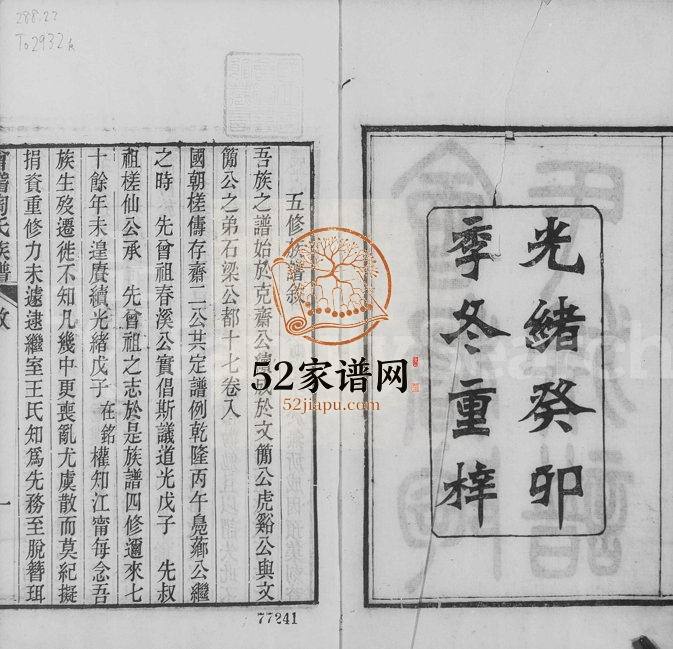 288.22
To2932
光緒癸卯
季冬重梓
五修族譜敘
吾族之譜始於克齋公於文簡公虎谿公與文
簡公之弟石梁公都十七卷入
國朝槎儔存齋二公共定譜例乾隆丙午鳧薌公繼
之時 先曾祖春溪公實倡斯議道光戊子 先叔
祖槎仙公承 先曾祖之志於是族譜四修邇來七
十餘年未遑賡續光緒戊子 在銘權知江甯每念吾
族生歿遷徙不知凡幾中更喪亂尤虞散而莫紀擬
捐資重修力未遽逮繼室王氏知為先務至脫簪珥
氏族譜
敘
一
77241
52家谱网
52jiapu.com